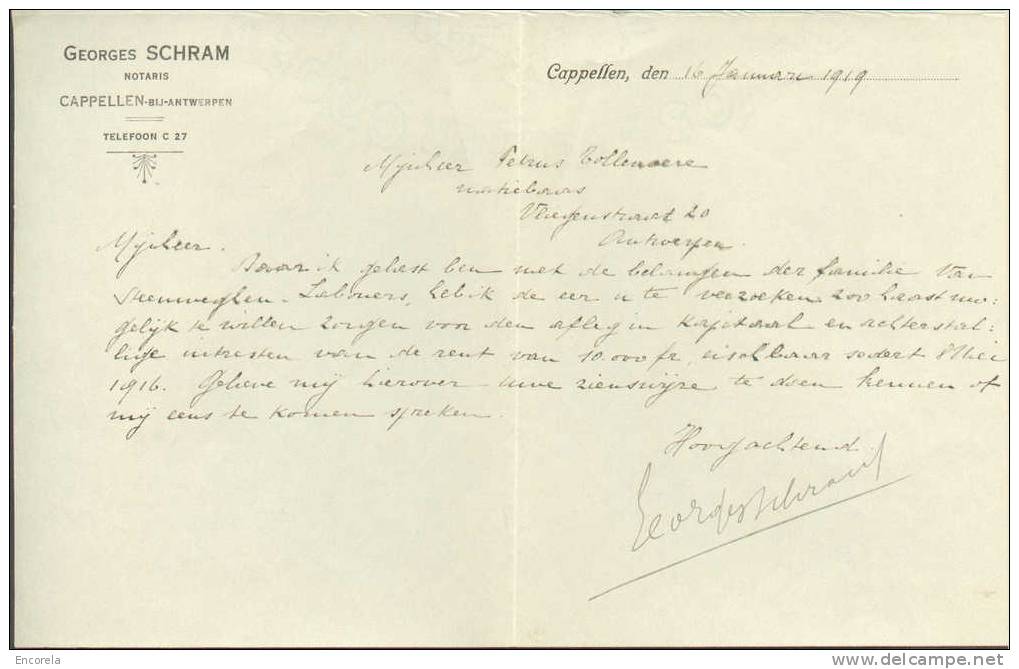 GEORGES SCHRAM
NOTARIS
CAPPELLEN-BIJ-ANTWERPEN
TELEFOON C 27
Cappellen, den 16 Januari 1919
Mijnheer Petrus Tollenaere
natiebaas
20
Antwerpen
Mijnheer.
Daar ik gelast ben met de belangen der familie Van
Steenweghen-, heb ik de eer u te verzoeken zoo haast mo-
gelijk te willen zorgen voor den afleg in kapitaal en achterstal-
lige intresten van de rent van 10.000 fr, eischbaar sedert 8 Mei
1916. Gelieve mij hierover uwe zienswijze te doen kennen of
mij eens te komen spreken.
Hoogachtend
Georges Schram
Encorela
delcampe.net